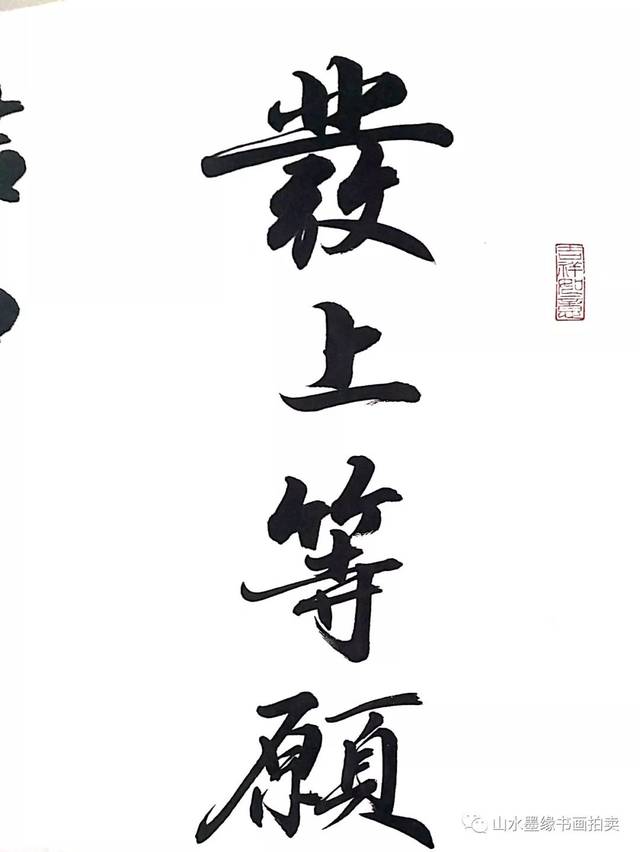 發上等願
吉祥如意
山水墨缘书画拍卖